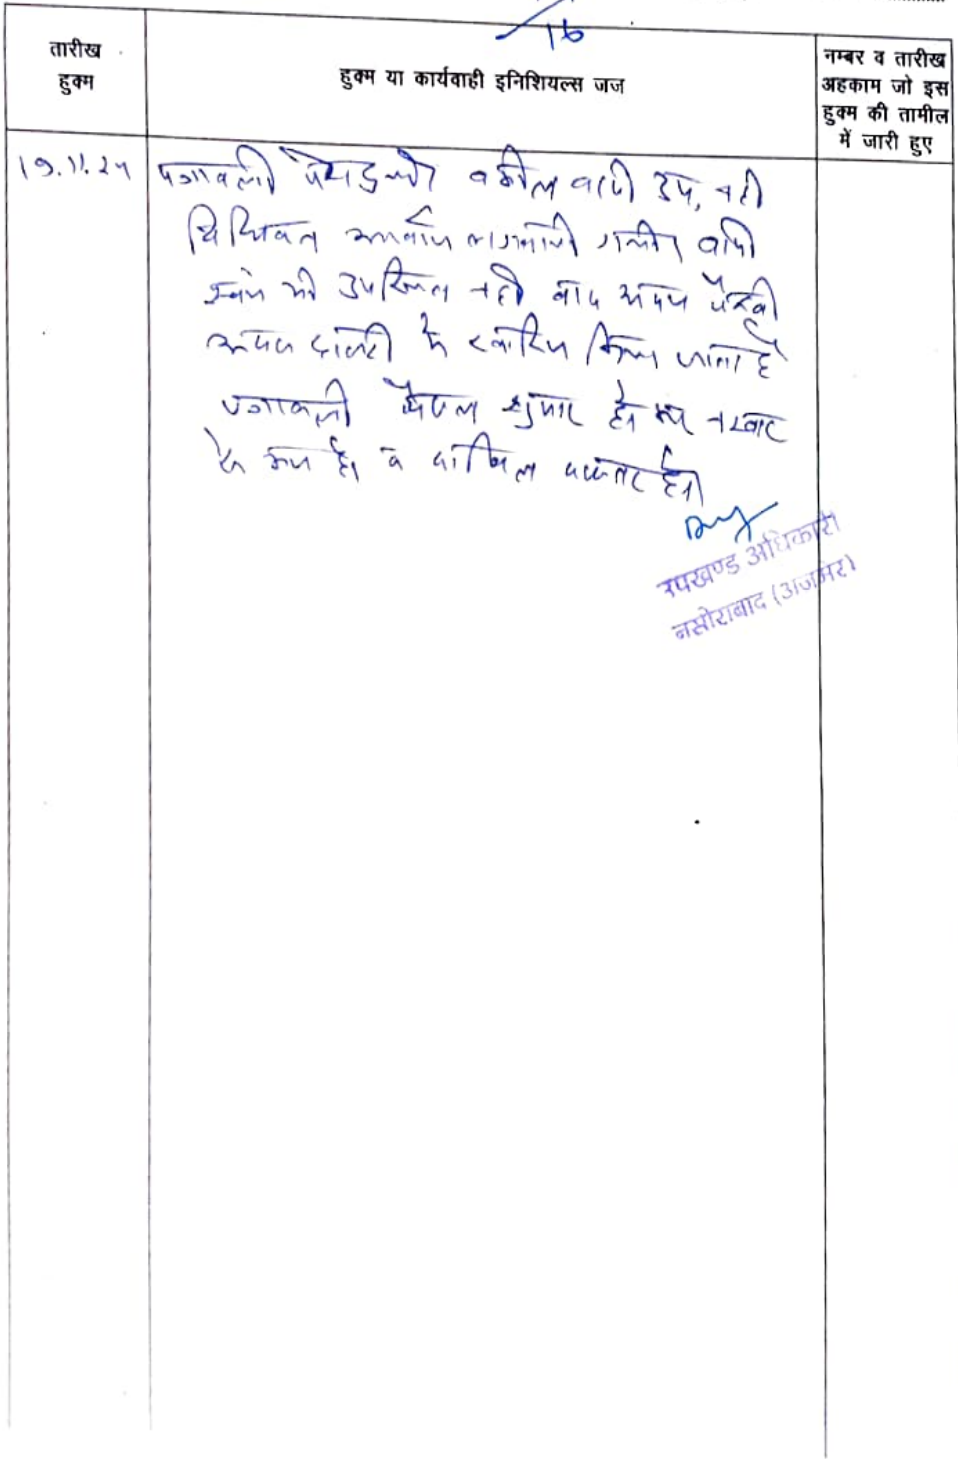 16
तारीख
हुक्म
हुक्म या कार्यवाही इनिशियल्स जज
नम्बर व तारीख
अहकाम जो इस
हुक्म की तामील
में जारी हुए
19.11.24 पत्रावली पेश हुयी वकील वादी उप. नही
विधिवत आवाज लगवायी गयी। वादी
स्वंय भी उपस्थित नही वाद अदम पैरवी
अदम हाजरी के खारिज किया जाता है
पत्रावली फैसल शुमार हो नम्बर
से कम हो व दाखिल दफ्तर हो।
उपखण्ड अधिकारी
नसीराबाद (अजमेर)